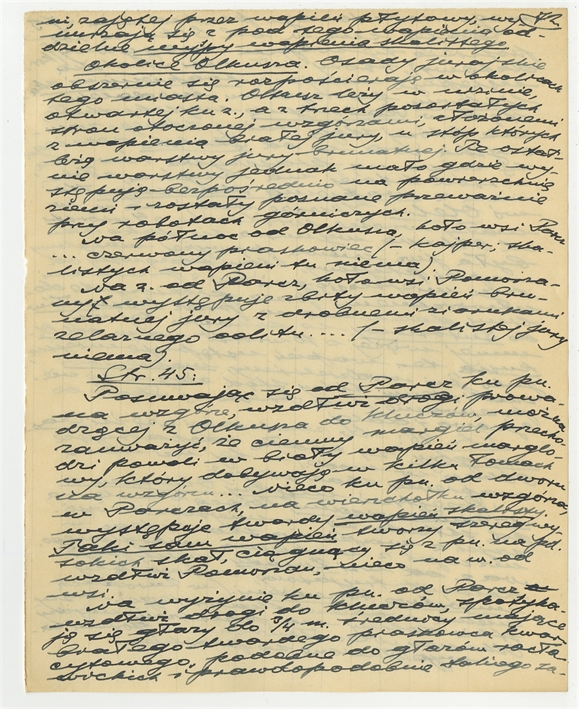 ni, zajętej przez wapień płytowy, wy- 72
nurzają się z pod tego wapienia od-
dzielne wyspy wapienia skalistego.
Okolice Olkusza. Osady jurajskie
obszernie się rozpościerają w okolicach
tego miasta. Olkusz leży w nizinie
otwartej ku z., a z trzech pozostałych
stron otoczonej wzgórzami, złożonemi
z wapienia białej jury, u stóp których
leżą warstwy jury brunatnej. Te ostat-
nie warstwy jednak mało gdzie wy-
stępują bezpośrednio na powierzchnię
ziemi i zostały poznane przeważnie
przy robotach górniczych.
Na północ od Olkusza, koło wsi Parcz
... czerwony piaskowiec (- kajper, ska-
listych wapieni tu niema)
Na z. od Parcz, koło wsi Pomorza-
ny występuje zbity wapień bru-
natnej jury z drobnemi ziarnkami
żelaznego oolitu .... (- skalistej jury
niema).
Str. 45:
Posuwając się od Parcz ku pn.
na wzgórze, wzdłuż drogi prowa-
dzącej z Olkusza do Kluczów można
zauważyć, że ciemny margiel przecho-
dzi powoli w biały wapień marglo-
wy, który dobywają w kilku łomach
na wzgórzu ... nieco ku pn. od dworu
w Parczach, na wierzchołku wzgórza
występuje twardy, wapień skalisty.
Taki sam wapień tworzy szereg wy-
sokich skał, ciągnący się z pn. na pd.
wzdłuż Pomorzan, nieco na w. od
wsi.
Na wyżynie ku pn. od Parcz
wzdłuż drogi do Kluczów, spotyka-
ją się głazy do 3/4 m. średnicy mające
białego twardego piaskowca kwar-
cytowego, podobne do głazów racła-
wickich i prawdopodobnie takiego sa-